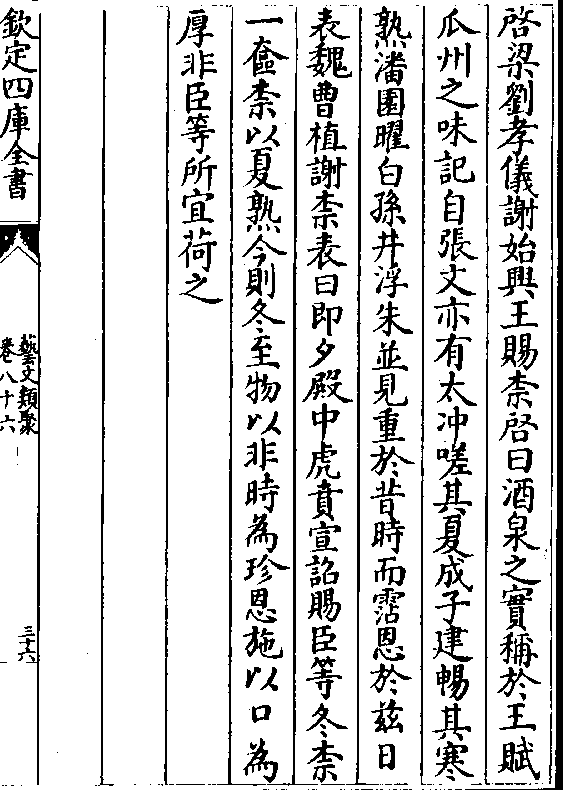 啓梁劉孝儀謝始興王賜柰啓曰酒泉之實稱於王賦
瓜州之味記自張文亦有太冲嗟其夏成子建暢其寒
熟潘園曜白孫井浮朱並見重於昔時而霑恩於兹日
表魏曹植謝柰表曰即夕殿中虎賁宣詔賜臣等冬柰
一奩柰以夏熟今則冬至物以非時為珍恩施以口為
厚非臣等所宜荷之
欽定四庫全書
藝文類聚
卷八十六
三十六